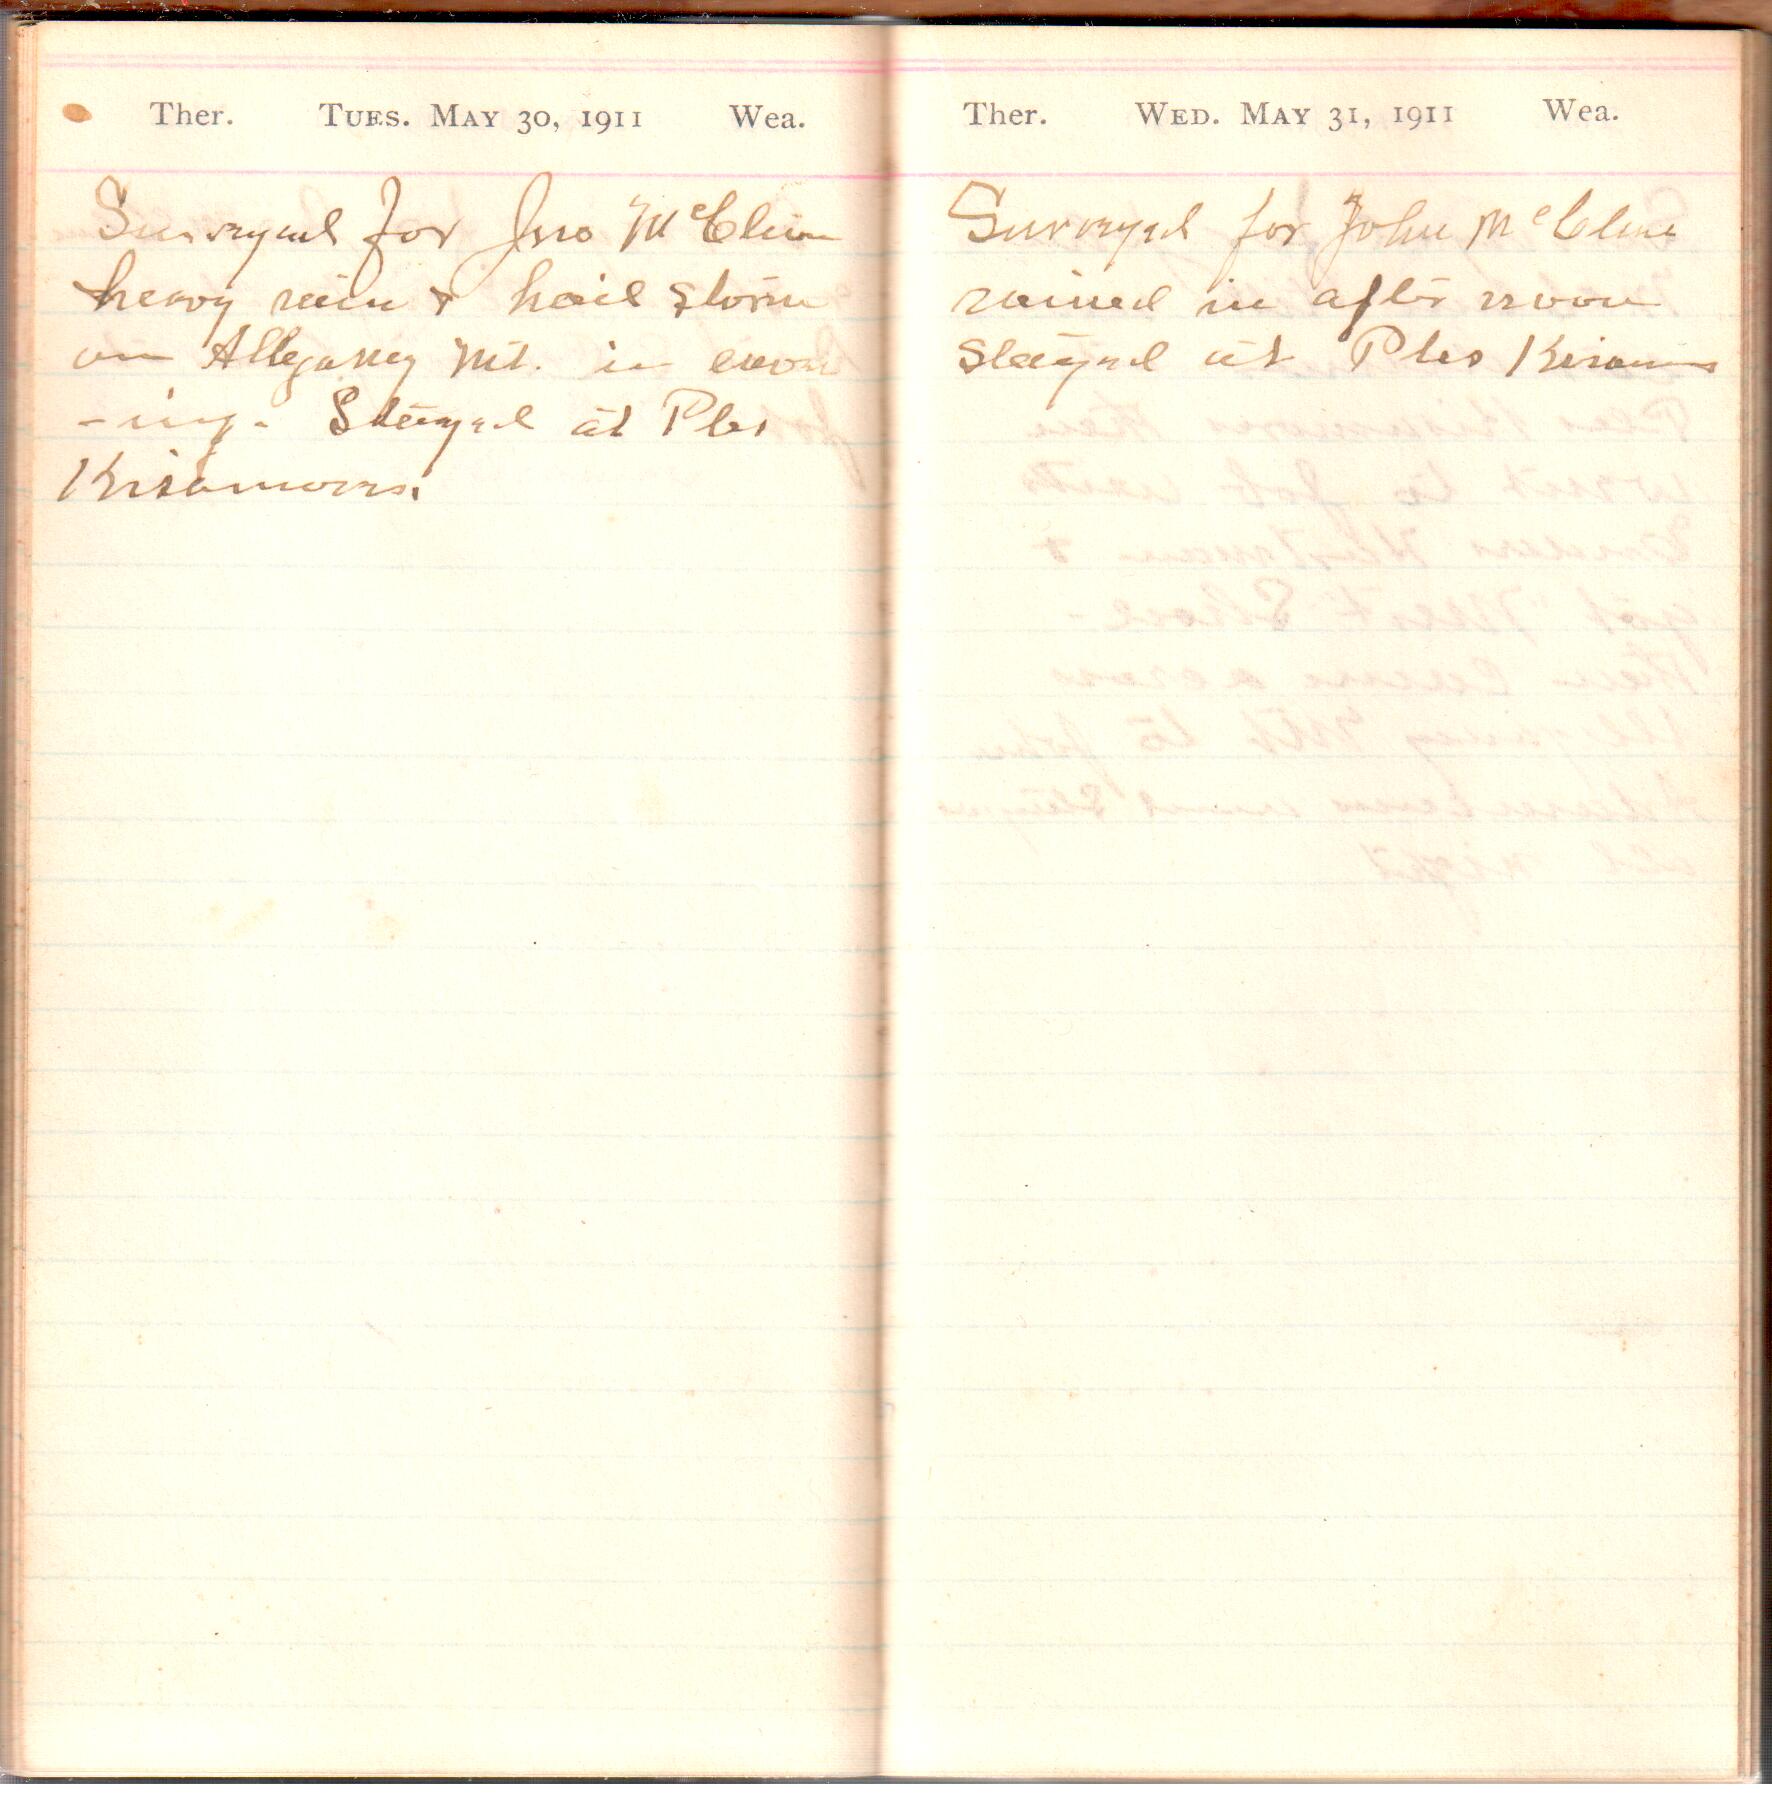 Ther. Tues. May 30, 1911 Wea.
Surveyed for Jno McClun
heavy rain & hail storm
on Allegany Mt. in even
-ing. Stayed at Ples
Kisamores.
Ther. Wed. May 31, 1911 Wea.
Surveyed for John McClune
rained in after noon
Stayed at Ples Kisamores